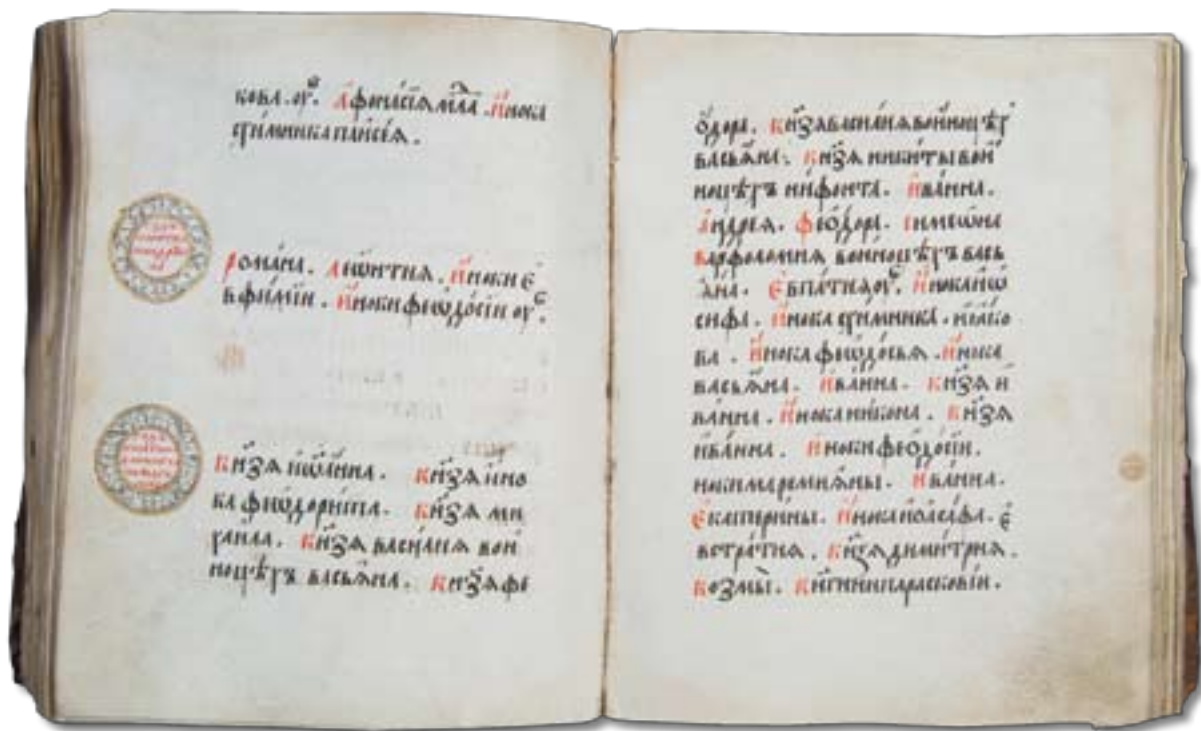 кова. ѹ҃. Афонасїѧ мл҃а. И҆нока
схимника паисе́ѧ.
Рома́на. Леѡ́нтиѧ. И҆ноки є҆
вфи́мїи. И҆ноки феѡдо́сїи ѹ҃.
Кн҃зѧ и҆ѡа́нна. Кн҃зѧ и҆но
ка феѡдори́та. Кн҃зѧ ми
хаила. Кн҃зѧ василиѧ вои
ноцѣхъ васьѧ́на. Кн҃зѧ фе
ѡ҆дора. Кн҃зѧ василиѧ во и҆ноцѣх
васьѧ́на. Кн҃зѧ никиты во и҆
ноцѣхъ ни́фонта. И҆ва́нна.
А҆ндреѧ. Феѡ́дора. Симеѡ́на
Варфоломиѧ во и҆ноцѣхъ вась
ѧ́на. Є҆впа́тиѧ ѹ҃. И҆нока и҆ѡ
сифа. И҆нока схимника. и҆ѧко
ва. И҆нока феѡдо́сьѧ. И҆нока
васьѧ́на. И҆ва́нна. Кн҃зѧ и҆
ванна. И҆нока никона. Кн҃зѧ
и҆ва́нна. И҆ноки феѡдосїи.
ноки маремиѧ́ны. И҆ва́нна.
Є҆катерины. И҆нока и҆оаса́фа. є҆
встра́тиѧ. Кн҃зѧ дими́триѧ.
Козмы̀. Кн҃гини парасковїи.